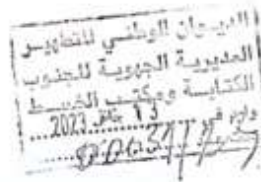 الديوان الوطني للتطهير
المديرية الجهوية للجنوب
الكتابة ومكتب الضبط
وارد في 13 جانفي 2023